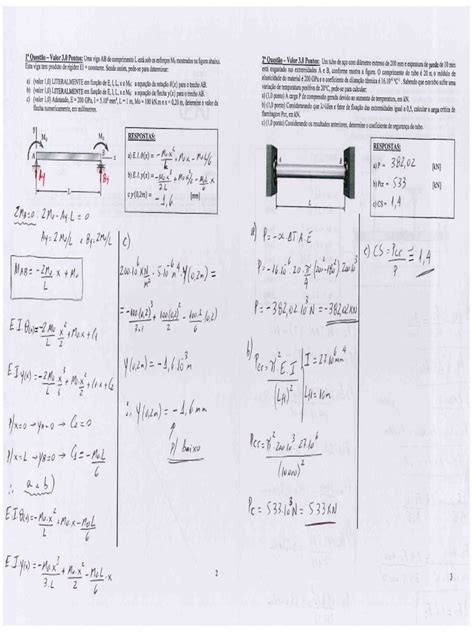 1ª Questão – Valor 3.0 Pontos: Uma viga AB de comprimento L está sob os esforços M₀ mostrados na figura abaixo.
Esta viga tem produto de rigidez EI = constante. Sendo assim, pede-se para determinar:
a) (valor 1,0) LITERALMENTE em função de E, I, L, x e M₀: a equação de rotação θ(x) para o trecho AB.
b) (valor 1,0) LITERALMENTE em função de E, I, L, x e M₀: a equação da flecha y(x) para o trecho AB.
c) (valor 1,0) Adotando, E = 200 GPa, I = 5.10⁶ mm⁴, L = 1 m, M₀ = 100 kN.m e x = 0,20 m, determinar o valor da
flecha numericamente, em milímetros.
RESPOSTAS:
a) E.I.θ(x) = -M₀x²/L + M₀x - M₀L/6
b) E.I.y(x) = -M₀x³/3L + M₀x²/2 - M₀Lx/6
c) y(0,2m) = -1,6 (mm)
y M₀ M₀
A B
Ay By
L
ΣM_B=0 ∴ 2M₀ - Ay.L = 0
Ay = 2M₀/L e By = 2M₀/L
M_AB = -2M₀/L x + M₀
E.I θ(x) = -2M₀/L x²/2 + M₀x + C₁
E.I y(x) = -2M₀/L x³/6 + M₀x²/2 + C₁x + C₂
P/ x=0 → y_A=0 → C₂=0
P/ x=L → y_B=0 → C₁ = -M₀L/6
∴ a e b)
E.I θ(x) = -M₀x²/L + M₀x - M₀L/6
E.I y(x) = -M₀x³/3.L + M₀.x²/2 - M₀L/6 .x
c)
200.10⁶ kN/m² . 5.10⁻⁶ m⁴ . y(0,2m) =
= -100(0,2)³/3.1 + 100(0,2)²/2 - 100.1/6 (0,2)
y(0,2m) = -1,6.10⁻³ m
∴ y(0,2m) = -1,6 mm
P/ Baixo
2
2ª Questão – Valor 3.0 Pontos: Um tubo de aço com diâmetro externo de 200 mm e espessura de parede de 10 mm
está engastado nas extremidades A e B, conforme mostra a figura. O comprimento de tubo é 20 m, o módulo de
elasticidade do material é 200 GPa e o coeficiente de dilatação térmica é 16.10⁻⁶ °C⁻¹. Sabendo que este tubo sofre uma
variação de temperatura positiva de 20°C, pede-se para calcular:
a) (1,0 ponto) a carga P de compressão gerada devido ao aumento de temperatura, em kN.
b) (1,0 ponto) Considerando que
c) (1,0 ponto) Considerando os resultados anteriores, determine o coeficiente de segurança do tubo.
A B
L
RESPOSTAS:
a) P = 382,02 [kN]
b) Pcr = 533 [kN]
c) CS = 1,4
a)
P = -α.ΔT.A.E
P = -16.10⁻⁶.20.π/4(200²-180²).200.10³
P = -382,02.10³ N = -382,02 kN
b)
Pcr = π².E.I/(Lfl)²
I = 27.10⁶ mm⁴
Lfl = 10m
Pcr = π².200.10³.27.10⁶/(10000)²
Pc = 533.10³ N = 533 kN
c) CS = Pcr/P = 1,4
3